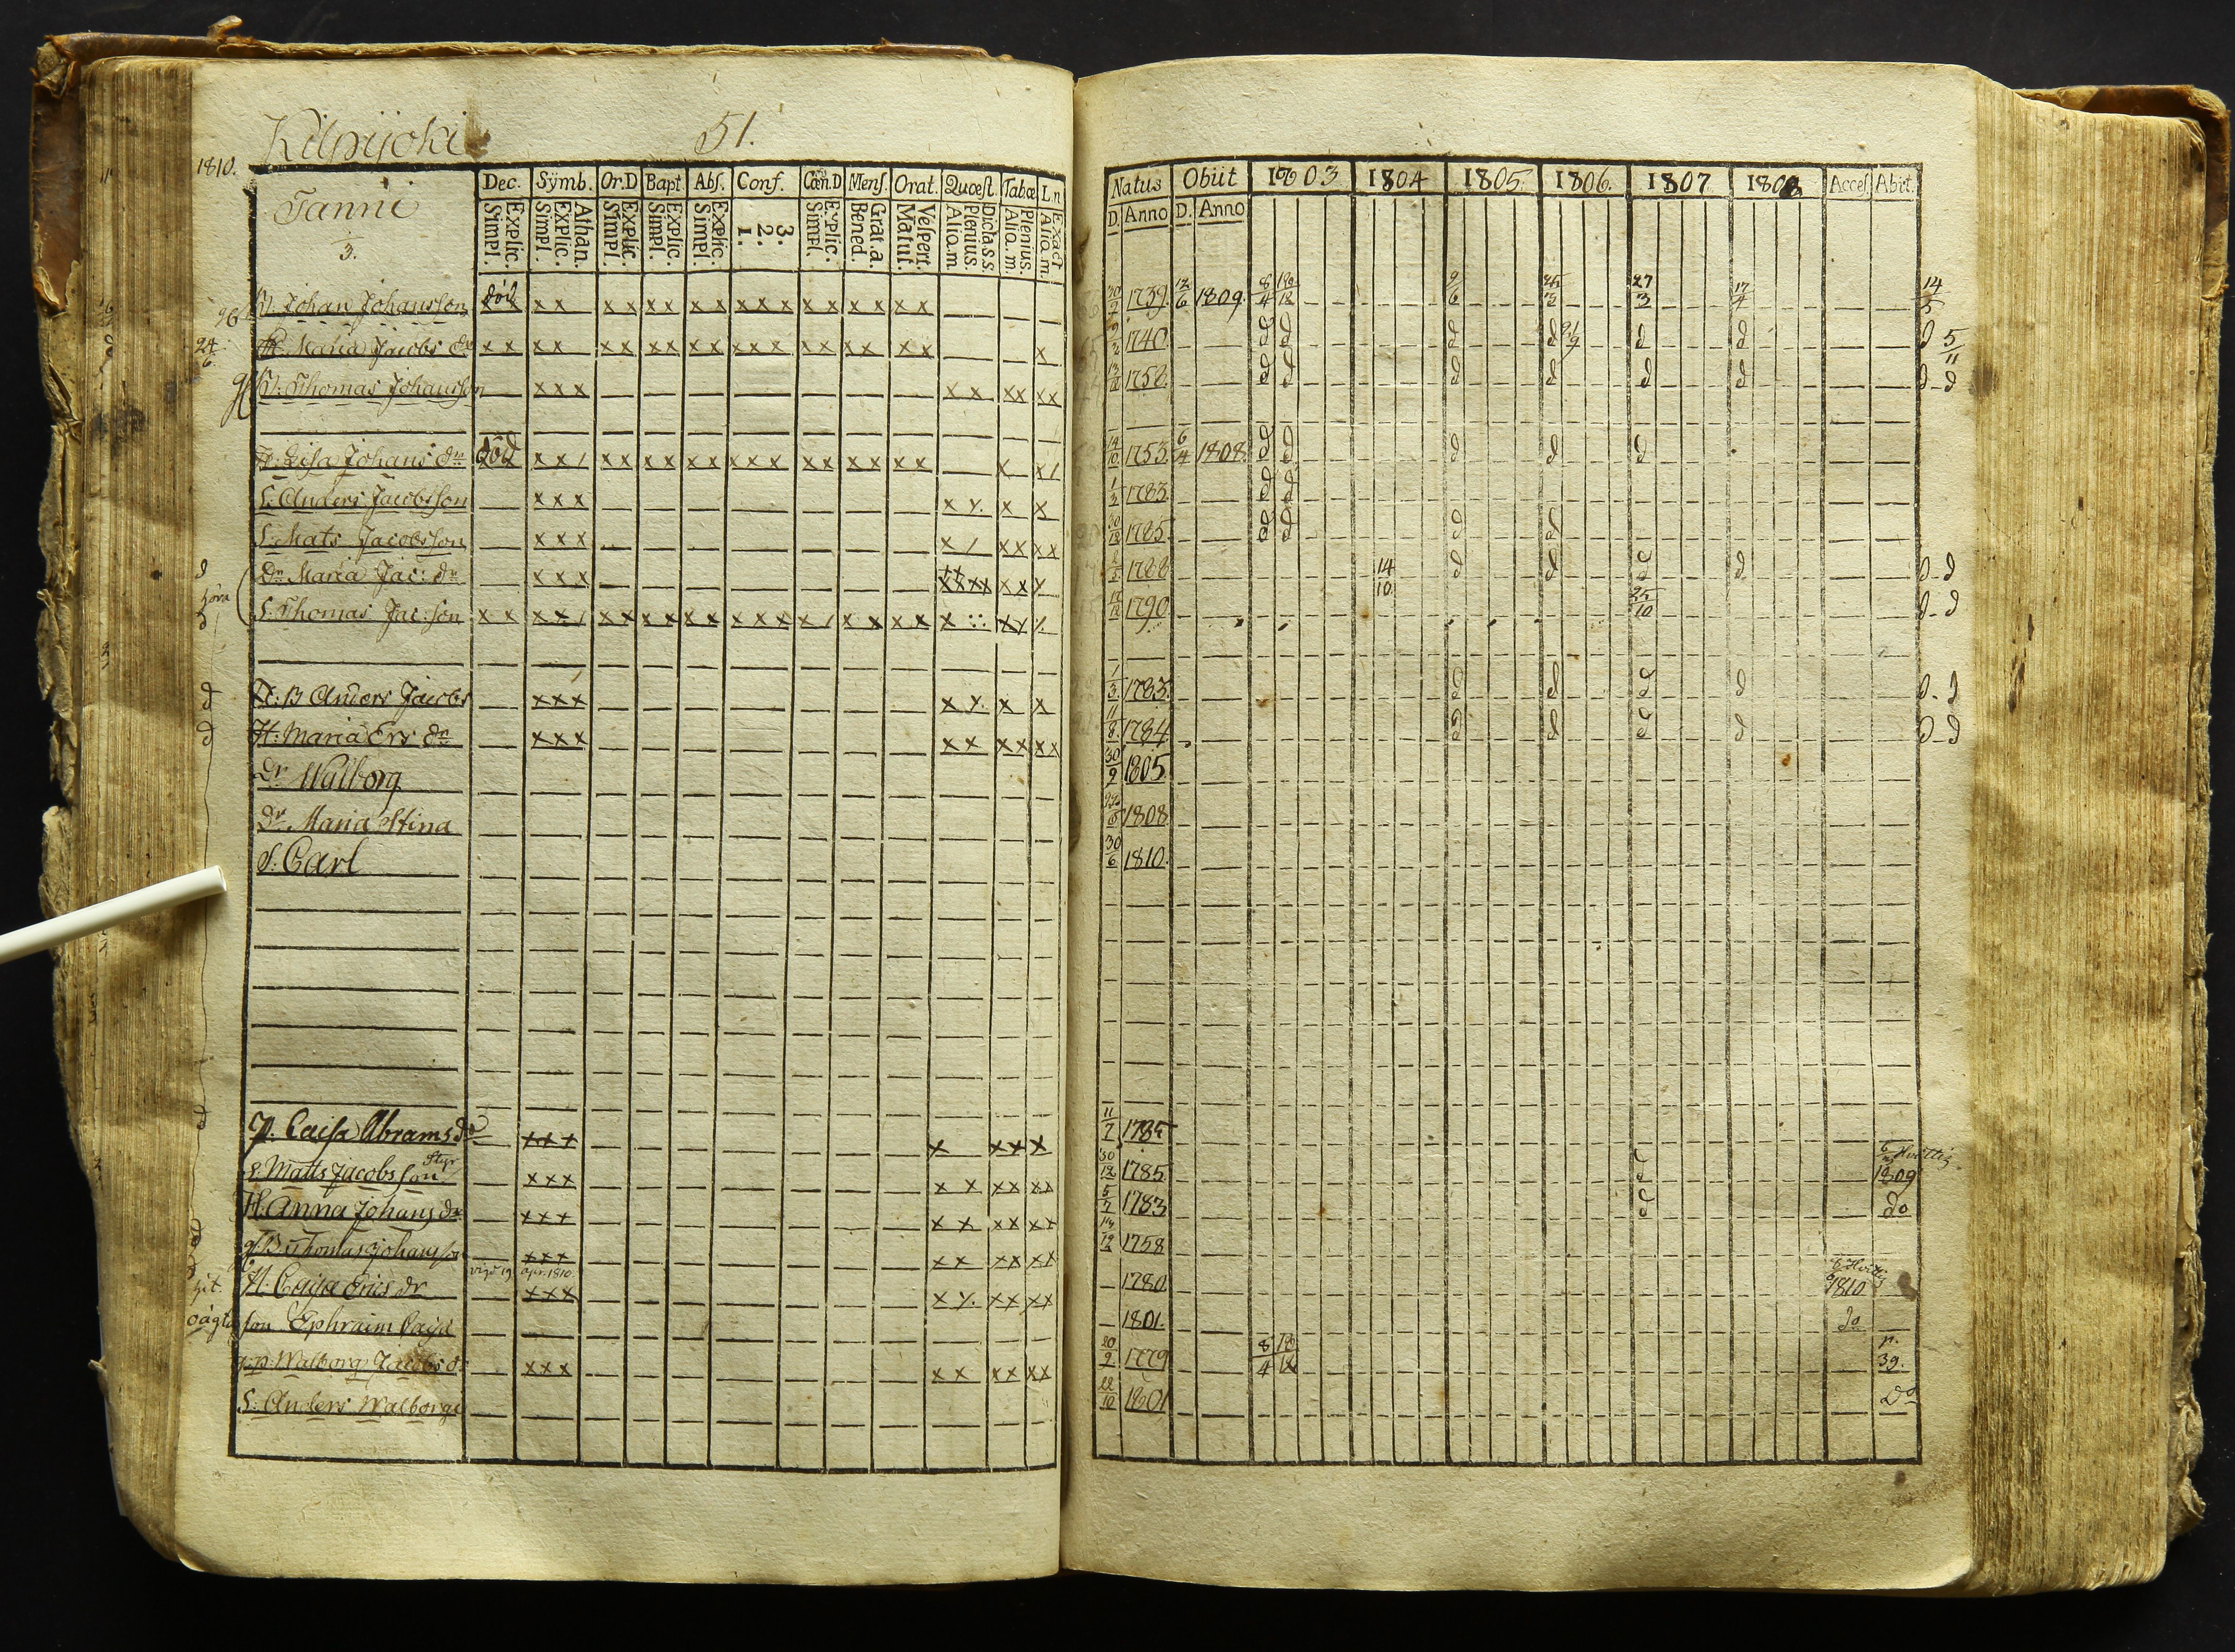 Kilpijoki 51.
1810.
Dec. Sÿmb. Or.D Bapt Abſ. Conf. Cœn.D Menſ. Orat. Quœſt Tabœ L.n
Tanni
3.
Explic. Simpl.
Athan. Explic. Simpl.
Explic. Simpl.
Explic. Simpl.
Explic. Simpl.
3. 2. 1.
Explic. Simpl.
Grat.a. Bened.
Veſpert. Matut.
Dicta.s.s. Plenius. Alio.m
Plenius. Alio.m.
Exact Alio.m.
B. Johan Johansson död x x x x x x x x x x x x x x x x x
H. Maria Jacobs dr x x x x x x x x x x x x x x x x x x x x
B. Thomas Johansson x x x x x x x x x
H: Lisa Johans dr död x x / x x x x x x x x x x x x x x x x x x /
S. Anders Jacobsson x x x x y. x x
S. Mats Jacobsson x x x x / x x x x
Dr Maria Jac: dr x x x x x x x x x x
S. Thomas Jac: son x x x x / x x x x x x x x x x / x x x x x
B Anders Jacobs x x x x y. x x
H: Maria Ers dr x x x x x x x x x
Dr Walborg
Dr Maria Stina
S. Carl
P. Caisa Abrams dr x x x x x x x
S. Matts Jacobsson x x x x x x x x x
H. Anna Johans dr x x x x x x x x x
B Thomas Johansson x x x x x x x x x
H. Caisa Erics dr x x x x y. x x x x
vigd 19 apr. 1810.
son Ephraim Caisa
Walborg Jacobs dr x x x x x x x x x
S: Anders Walborgs
Natus Obiit 1803 1804 1805 1806. 1807 1808 Acceſ Abit.
D. Anno D. Anno
30/7 1739. 12/6 1809. 8/4 18/12 9/6 25/3 27/3 17/4 14/5
9/2 1740. d d d d 21/9 d d d 5/11
13/12 1758. d d d d d d d - d
14/10 1753. 6/4 1808. d d d d d
1/3 1783. d d
30/12 1785. d d d d
1788 14/10 d d d d d - d
1790 25/10 d - d
1/3 1783. d d d d d - d
11/8 1784 d d d d d - d
30/9 1805.
1808.
30/6 1810.
11/7 1785
30/12 1785. d 1809
5/2 1783 d do
13/12 1758
1780. 1810
1801. do
20/9 1779 8/4 18/12 p. 39.
22/10 1801 Do